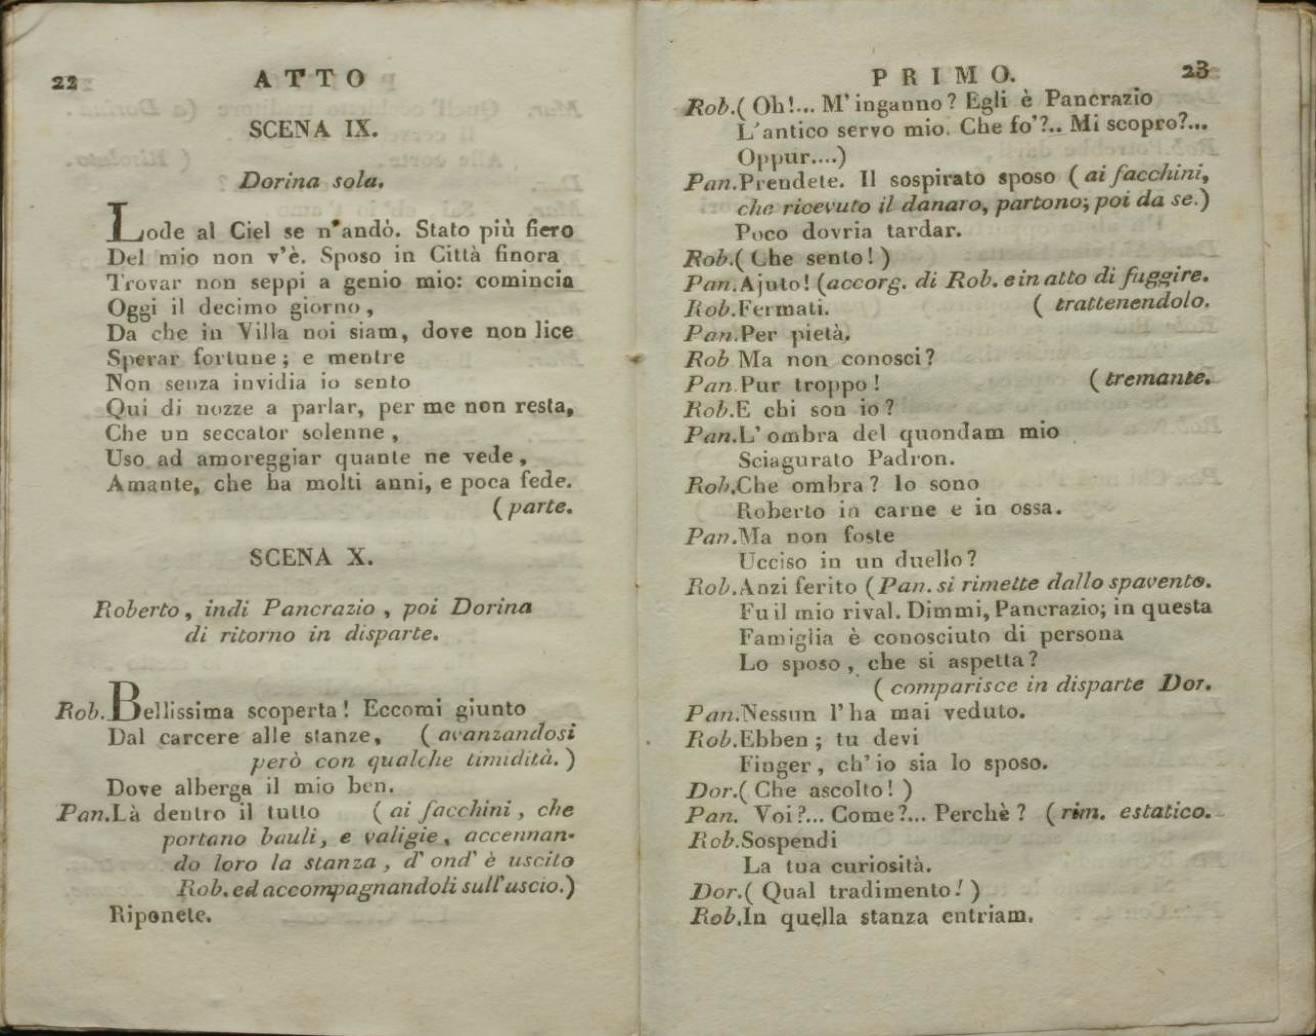 22
ATTO
SCENA IX.
Dorina sola.
Lode al Ciel se n'andò. Stato più fiero
Del mio non v'è. Sposo in Città finora
Trovar non seppi a genio mio: comincia
Oggi il decimo giorno,
Da che in Villa noi siam, dove non lice
Sperar fortune; e mentre
Non senza invidia io sento
Qui di nozze a parlar, per me non resta,
Che un seccator solenne,
Uso ad amoreggiar quante ne vede,
Amante, che ha molti anni, e poca fede.
(parte.
SCENA X.
Roberto, indi Pancrazio, poi Dorina
di ritorno in disparte.
Rob. Bellissima scoperta! Eccomi giunto
Dal carcere alle stanze, (avanzandosi
però con qualche timidità.)
Dove alberga il mio ben.
Pan. Là dentro il tutto (ai facchini, che
portano bauli, e valigie, accennan-
do loro la stanza, d'ond'è uscito
Rob. ed accompagnandoli sull'uscio.)
Riponete.
PRIMO.
23
Rob. (Oh!... M'inganno? Egli è Pancrazio
L'antico servo mio. Che fo'?.. Mi scopro?...
Oppur....)
Pan. Prendete. Il sospirato sposo (ai facchini,
che ricevuto il danaro, partono; poi da se.)
Poco dovria tardar.
Rob. (Che sento!)
Pan. Ajuto! (accorg. di Rob. e in atto di fuggire.
Rob. Fermati. (trattenendolo.
Pan. Per pietà.
Rob Ma non conosci?
Pan. Pur troppo! (tremante.
Rob. E chi son io?
Pan. L'ombra del quondam mio
Sciagurato Padron.
Rob. Che ombra? Io sono
Roberto in carne e in ossa.
Pan. Ma non foste
Ucciso in un duello?
Rob. Anzi ferito (Pan. si rimette dallo spavento.
Fu il mio rival. Dimmi, Pancrazio; in questa
Famiglia è conosciuto di persona
Lo sposo, che si aspetta?
(comparisce in disparte Dor.
Pan. Nessun l'ha mai veduto.
Rob. Ebben; tu devi
Finger, ch'io sia lo sposo.
Dor. (Che ascolto!)
Pan. Voi?... Come?... Perchè? (rim. estatico.
Rob. Sospendi
La tua curiosità.
Dor. (Qual tradimento!)
Rob. In quella stanza entriam.